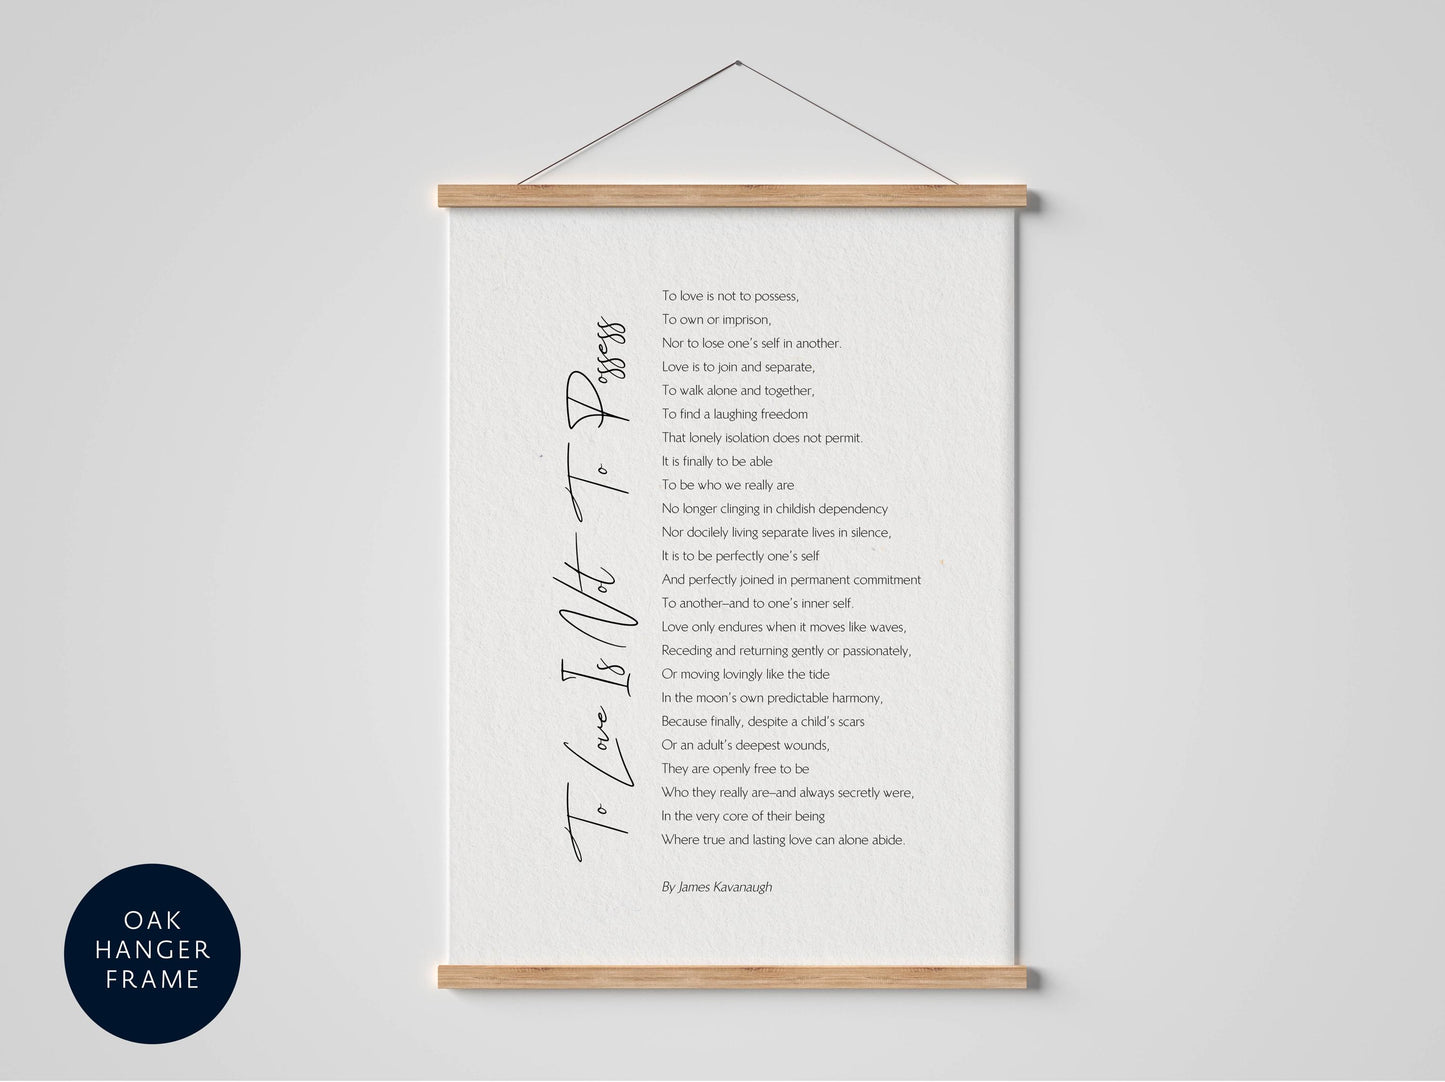 To Love Is Not To Possess
To love is not to possess,
To own or imprison,
Nor to lose one's self in another.
Love is to join and separate,
To walk alone and together,
To find a laughing freedom
That lonely isolation does not permit.
It is finally to be able
To be who we really are
No longer clinging in childish dependency
Nor docilely living separate lives in silence,
It is to be perfectly one's self
And perfectly joined in permanent commitment
To another–and to one's inner self.
Love only endures when it moves like waves,
Receding and returning gently or passionately,
Or moving lovingly like the tide
In the moon's own predictable harmony,
Because finally, despite a child's scars
Or an adult's deepest wounds,
They are openly free to be
Who they really are–and always secretly were,
In the very core of their being
Where true and lasting love can alone abide.
By James Kavanaugh
OAK
HANGER
FRAME